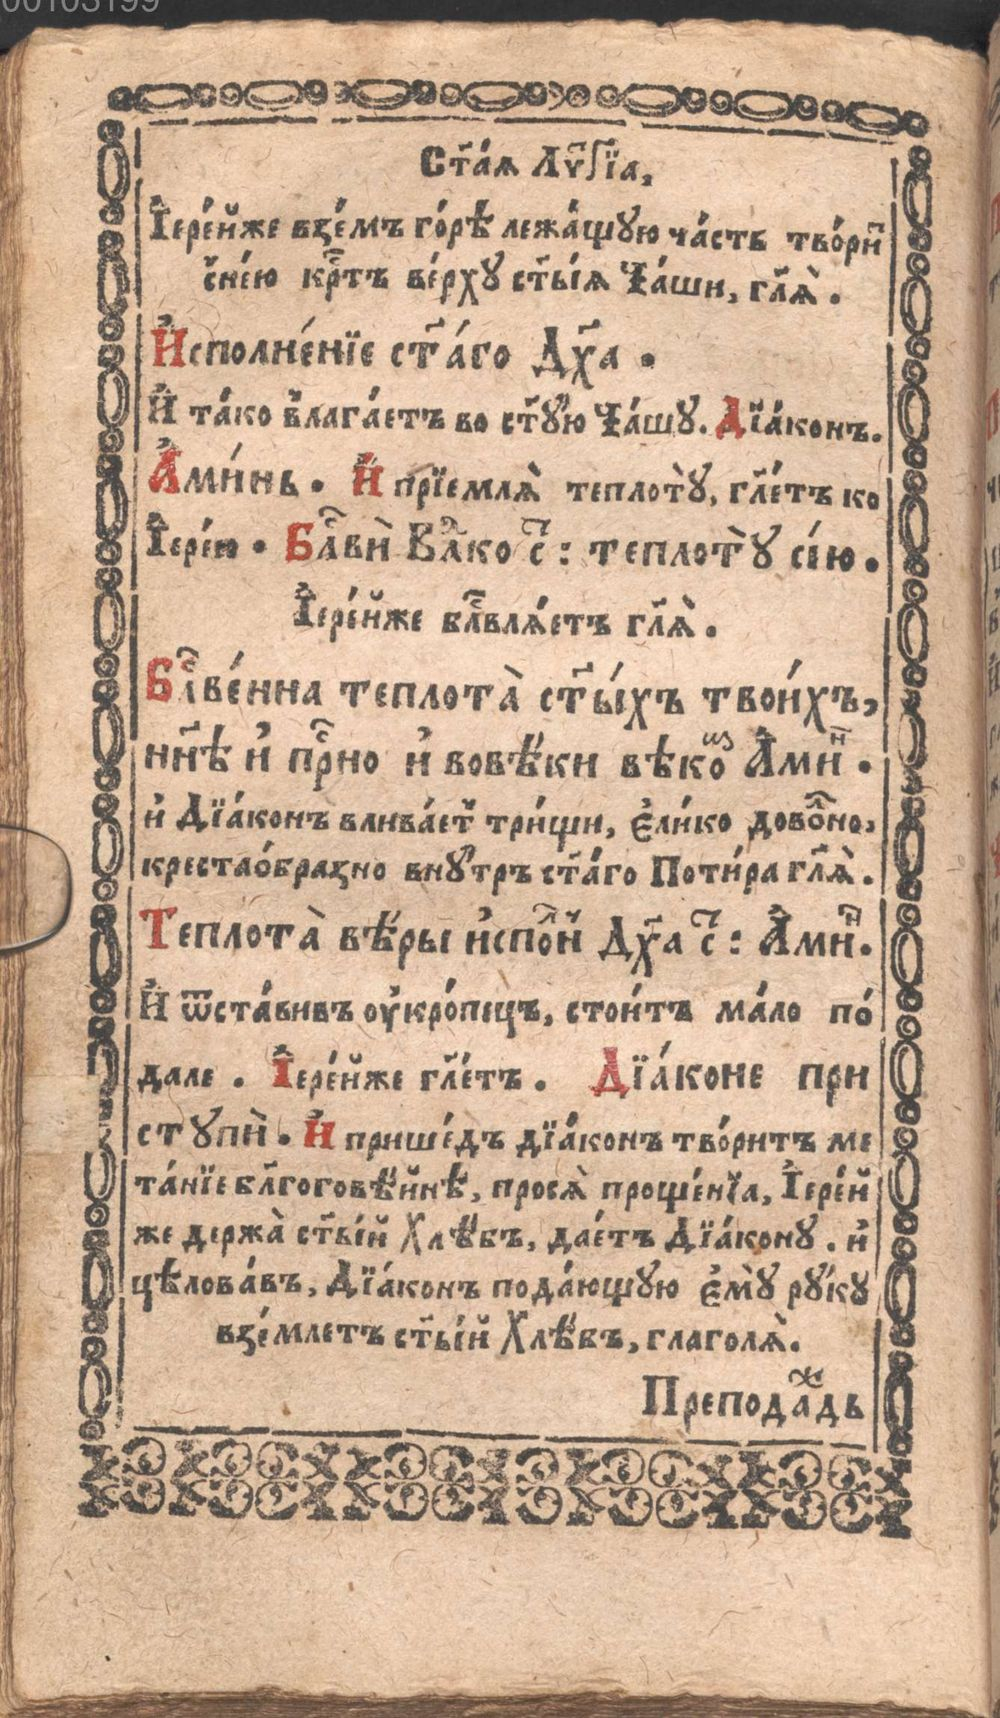 00103199
Ст҃а́ѧ Лѵⷮгі́а,
І҆ере́й же взе́мъ го́рѣ лежа́щꙋю ча́сть тво́риⷮ
с̾не́ю крⷭ҇тъ ве́рхꙋ ст҃ы́ѧ Ча́ши, гл҃ѧ̀.
И҆сполне́нїе ст҃а́го Дх҃а.
И҆ та́ко в̾лага́етъ во ст҃ꙋ́ю Ча́шꙋ. Дїа́конъ.
А҆ми́нь. И҆ прїемлѧ̀ теплотꙋ̀, гл҃етъ ко
І҆ере́ю. Бл҃ви̾ Влⷣко с҃: теплотꙋ̀ сі́ю.
І҆ере́й же бл҃влѧ́етъ гл҃ѧ̀.
Бл҃ве́нна теплота̀ ст҃ы́хъ твои́хъ,
нн҃ѣ и҆ прⷭ҇но и҆ вовѣ́ки вѣкѡⷨ А҆миⷩ.
и҆ Дїа́конъ влива́етⸯ три́щи, є҆ли́ко довоⷧно,
крестаѻ́бразно внꙋ́трь ст҃а́го Поти́ра гл҃ѧ̀.
Теплота̀ вѣ́ры и҆споⷧ҇н̾ Дх҃а с҃: А҆миⷩ.
И҆ ѿста́вивъ оу҆кро́пецъ, стои́тъ ма́ло по́
дале. І҆ере́й же гл҃етъ. Дїа́коне при
стꙋпѝ. И҆ прише́дъ дїа́конъ тво́ритъ ме
та́нїе бл҃гоговѣ́йнѣ, просѧ̀ проще́нїѧ, І҆ере́й
же держа̀ ст҃ы́й Хлѣ́бъ, дае́тъ Дїа́конꙋ. и҆
цѣлова́въ, Дїа́конъ пода́ющꙋю є҆мꙋ̀ рꙋ́кꙋ
взе́млетъ ст҃ы́й Хлѣ́бъ, глаголѧ̀.
Преподаⷤдь